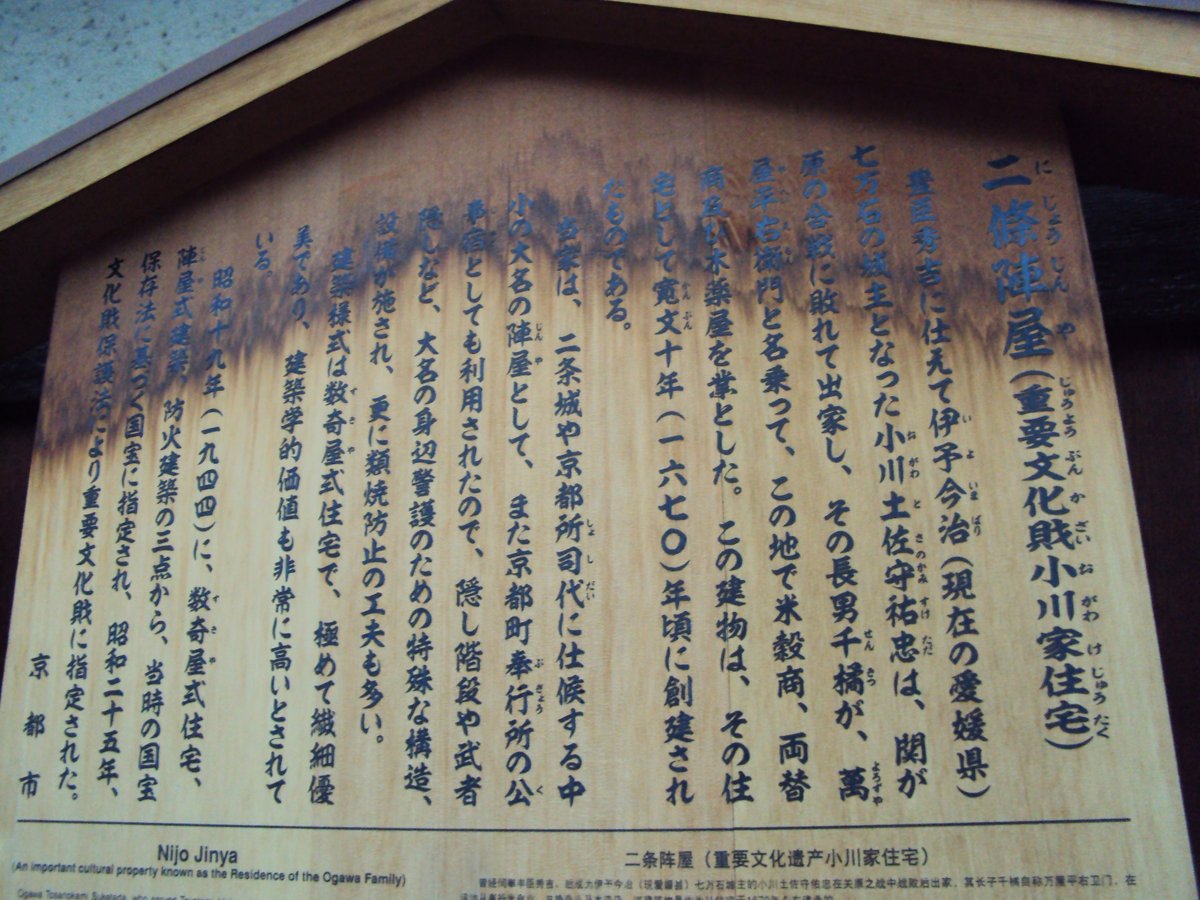 二條陣屋（重要文化財小川家住宅）
豊臣秀吉に仕えて伊予今治（現在の愛媛県）
七万石の城主となった小川土佐守祐忠は、関が
原の合戦に敗れて出家し、その長男千橘が、萬
屋平右衛門と名乗って、この地で米穀商、両替
商及び木薬屋を業とした。この建物は、その住
宅として寛文十年（一六七〇）年頃に創建され
たものである。
当家は、二条城や京都所司代に仕候する中
小の大名の陣屋として、また京都町奉行所の公
事宿としても利用されたので、隠し階段や武者
隠しなど、大名の身辺警護のための特殊な構造、
設備が施され、更に類焼防止の工夫も多い。
建築様式は数奇屋式住宅で、極めて繊細優
美であり、建築学的価値も非常に高いとされて
いる。
昭和十九年（一九四四）に、数奇屋式住宅、
陣屋式建築、防火建築の三点から、当時の国宝
保存法に基づく国宝に指定され、昭和二十五年、
文化財保護法により重要文化財に指定された。
京都市
Nijo Jinya
(An important cultural property known as the Residence of the Ogawa Family)
二条阵屋（重要文化遗产小川家住宅）